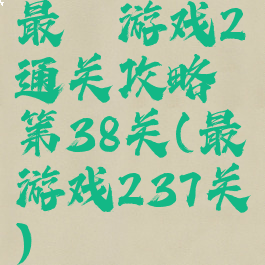 最 游戏2
通关攻略
第38关(最
游戏237关
)